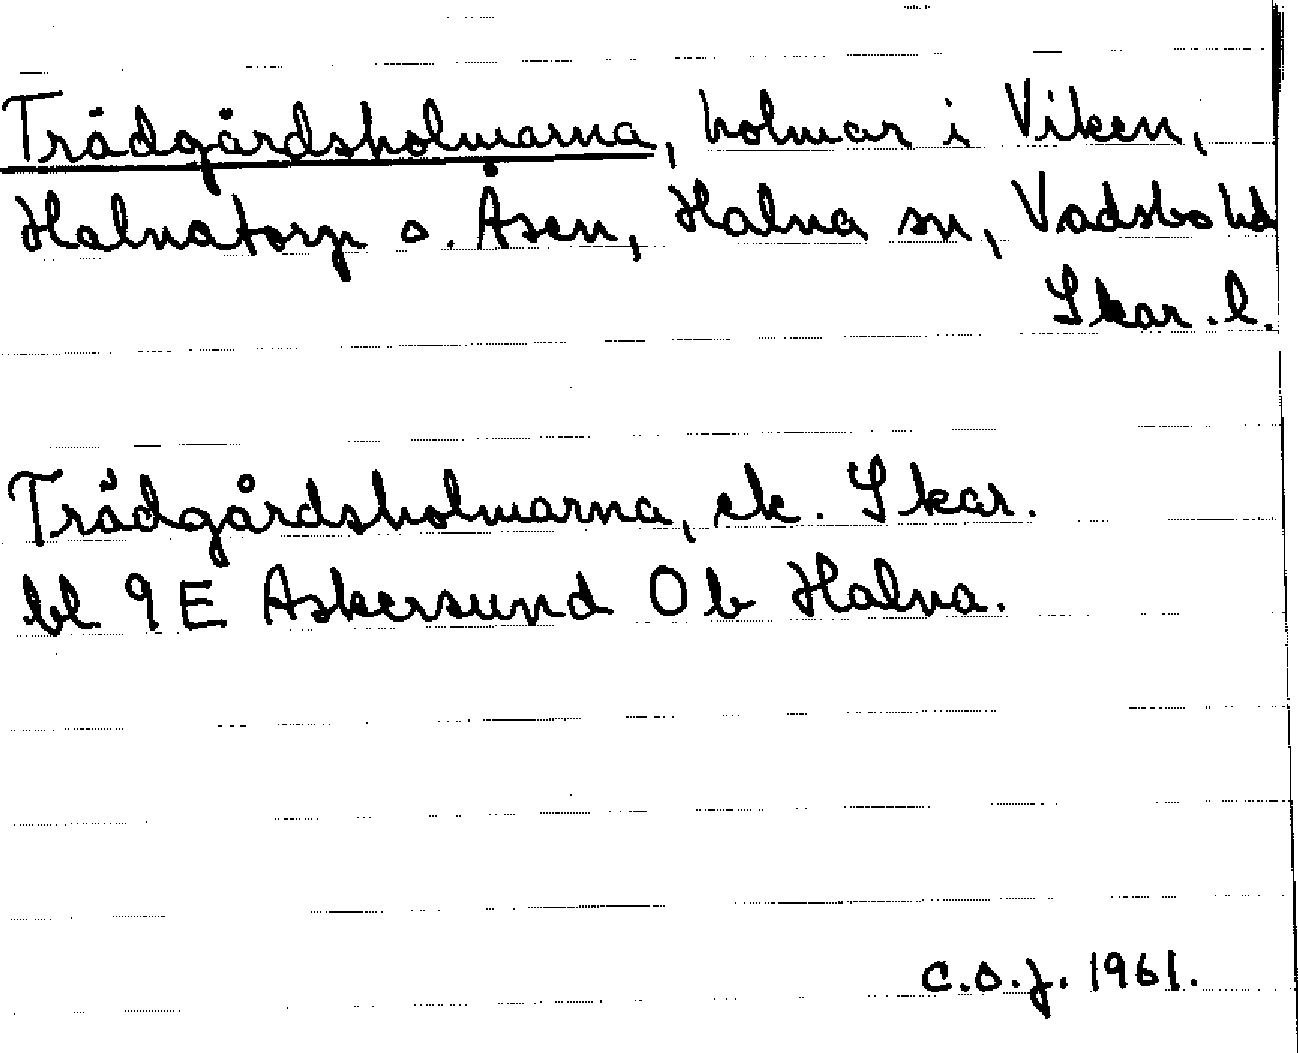 Trädgårdsholmarna, holmar i Viken,
Halnatorp o. Åsen, Halna sn, Vadsbo hd
Skar. l.
Trädgårdsholmarna, ek. Skar.
bl 9E Askersund 0b Halna.
C.O.J. 1961.